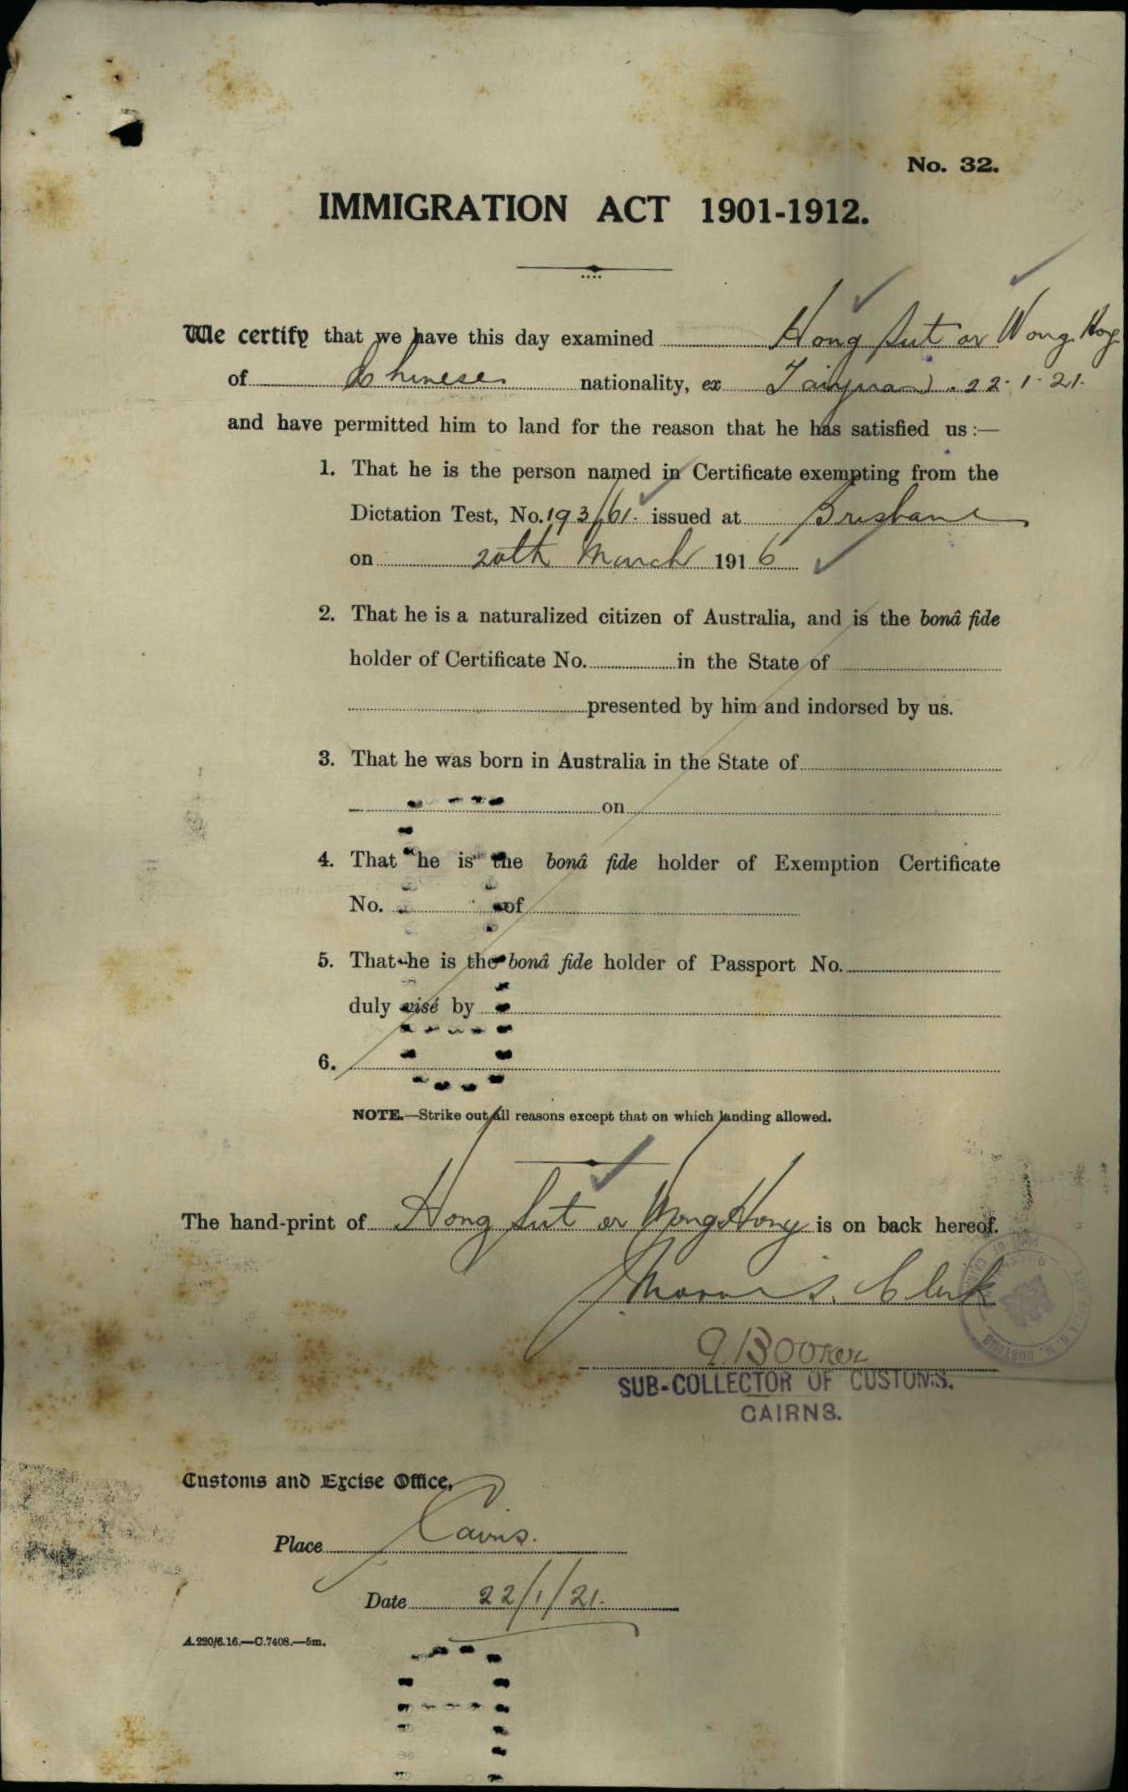 No. 32.
IMMIGRATION ACT 1901-1912.
We certify that we have this day examined Hong Sut or Wong Hong
of Chinese nationality, ex Taiyuan 22.1.21.
and have permitted him to land for the reason that he has satisfied us:—
1. That he is the person named in Certificate exempting from the
Dictation Test, No. 193/61. issued at Brisbane
on 20th March 1916
2. That he is a naturalized citizen of Australia, and is the bonâ fide
holder of Certificate No. in the State of
presented by him and indorsed by us.
3. That he was born in Australia in the State of
on
4. That he is the bonâ fide holder of Exemption Certificate
No. of
5. That he is the bonâ fide holder of Passport No.
duly visé by
6.
NOTE.—Strike out all reasons except that on which landing allowed.
The hand-print of Hong Sut or Wong Hong is on back hereof.
Clerk
SUB-COLLECTOR OF CUSTOMS.
CAIRNS.
Customs and Excise Office,
Place Cairns.
Date 22/1/21.
A.220/6.16.—C.7408.—5m.